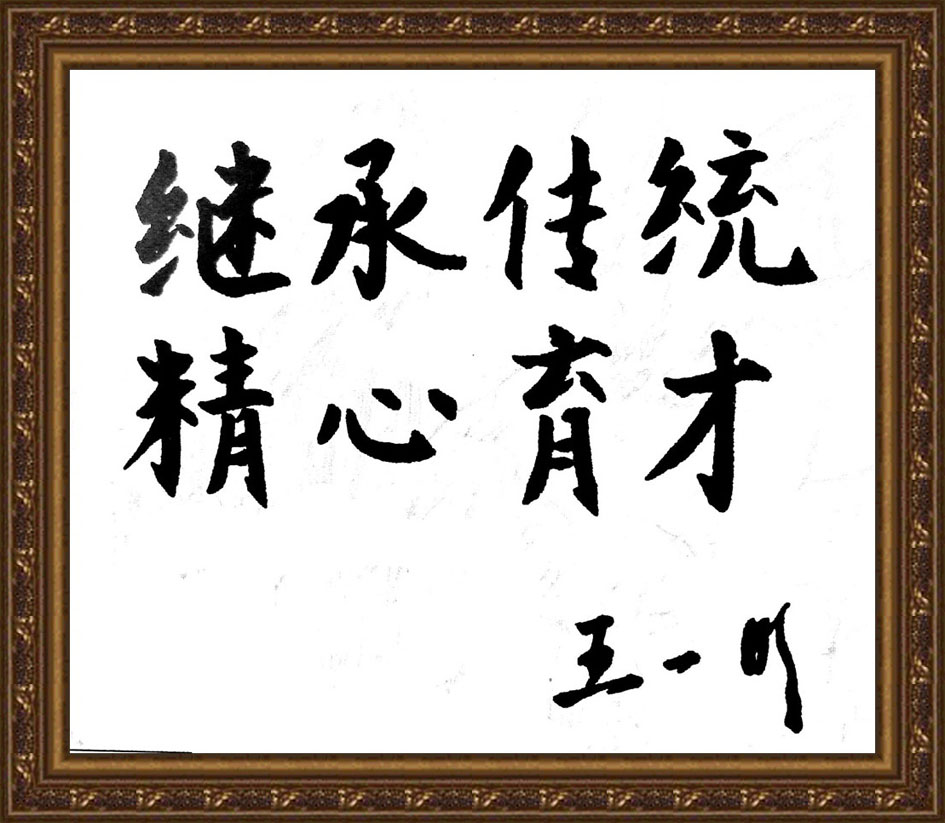 继承传统
精心育才
王一